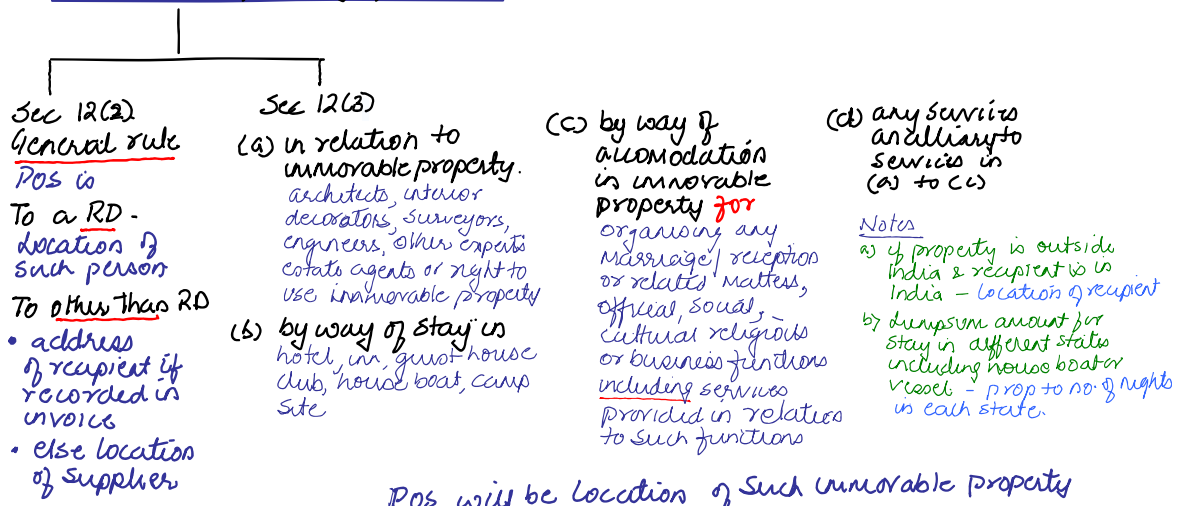 Sec 12(2)
General rule
POS is
To a RD -
Location of
such person
To other than RD
• address
of recipient if
recorded in
invoice
• else location
of supplier
Sec 12(3)
(a) in relation to
immovable property.
architects, interior
decorators, surveyors,
engineers, other experts
estate agents or right to
use immovable property
(b) by way of stay in
hotel, inn, guest house
club, house boat, camp
site
(c) by way of
accomodation
in immovable
property for
organising any
marriage/ reception
or related matters,
official, social,
cultural religious
or business functions
including services
provided in relation
to such functions
(d) any services
ancilliary to
services in
(a) to (c)
Notes
a) if property is outside
India & recipient is in
India - location of recipient
b) lumpsum amount for
stay in different states
including house boat or
vessel - prop to no. of nights
in each state.
POS will be location of such immovable property